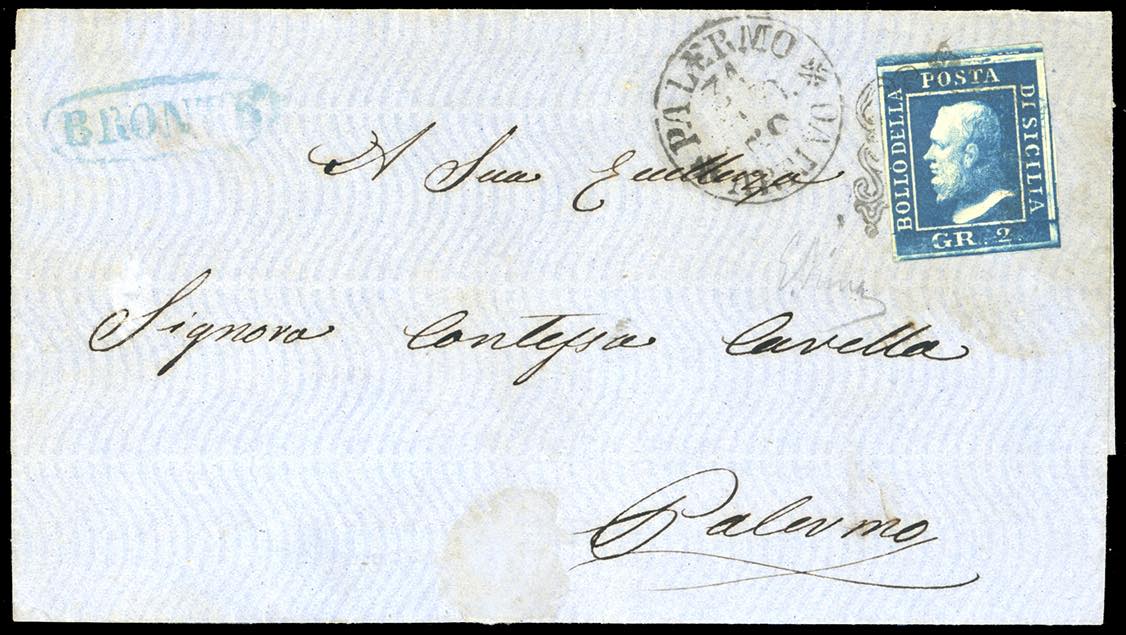 BRONTE
PALERMO
ARRIVO
POSTA
BOLLO DELLA
DI SICILIA
GR. 2.
A Sua Eccellenza
Signora Contessa Cavella
Palermo